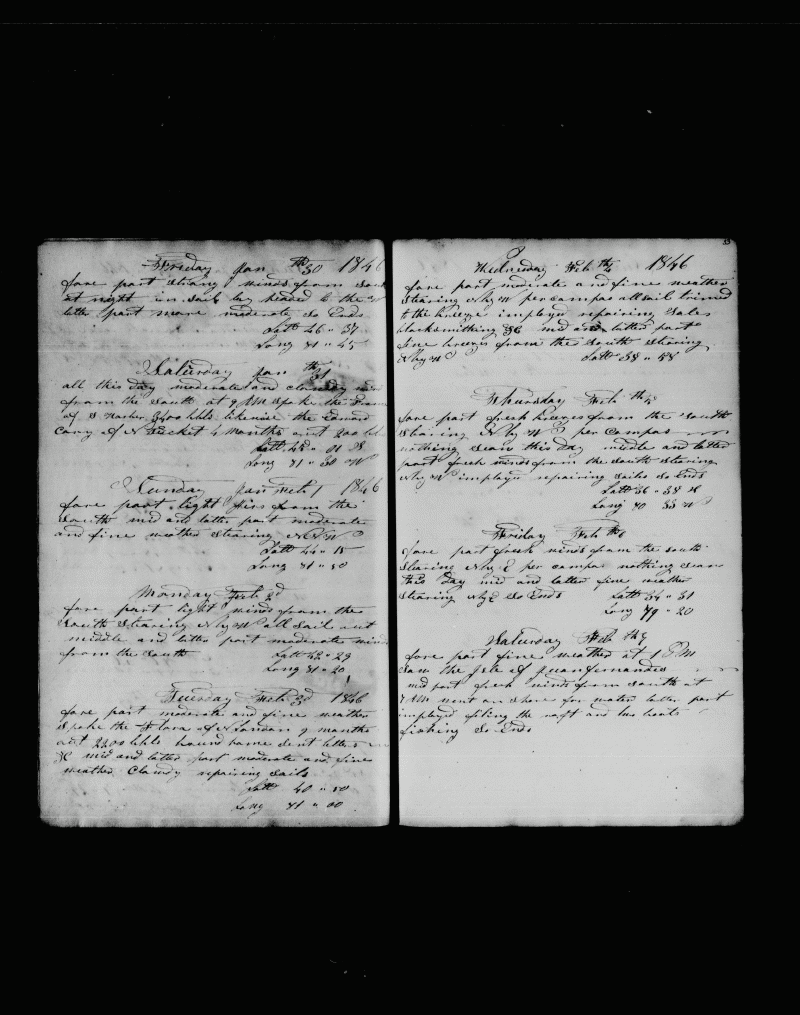 Friday Jan 30th 1846
fore part strong winds from South
at night in sail lay headed to the W
latter part more moderate So Ends
Latt 46 " 37
Long 81 " 45
Saturday Jan 31th
all this day moderate and cloudy
from the South at 9 AM Spoke the
of S Harbor 3400 bbls likewise the Edward
Cary of N tucket 4 Months out 200 bbls
Latt 45 " 01 S
Long 81 " 30 W
Sunday Jan Feb 1 1846
fore part light airs from the
South mid and latter part moderate
and fine weather Stearing N N W
Latt 44 " 15
Long 81 " 50
Monday Feb 2d
fore part light winds from the
South Stearing N by W all Sail out
middle and latter part moderate winds
from the South Latt 42 " 29
Long 81 " 20
Tuesday Feb 3d 1846
fore part moderate and fine weather
Spoke the Flora of N London 9 months
out 2200 bbls bound home Sent letters
&c mid and latter part moderate and fine
weather Cloudy repairing Sails
Latt 40 " 50
Long 81 " 00
53
Wednesday Feb 4th 1846
fore part moderate and fine weather
Stearing N by W per compas all sail trimed
to the breeze imployd repairing Sales
blacksmithing &c mid and latter part
fine breezes from the South Stearing
N by W Latt 38 " 58
Thursday Feb 5th
fore part fresh breezes from the South
Stearing N by W per compas
nothing Sean this day middle and latter
part fresh winds from the South Stearing
N by W imployd repairing Sailes So Ends
Latt 36 " 38 S
Long 80 33 W
Friday Feb 6
fore part fresh winds from the South
Stearing N by E per compas nothing Sean
this day mid and latter fine weather
Stearing N by E So Ends Latt 34 " 31
Long 79 " 20
Saturday Feb 7th
fore part fine weather at 1 PM
Saw the Isle of Juanfernandes
mid part fresh winds from South at
7 AM went on Shore for water latter part
imployd filing the raft and two boats
fishing So Ends